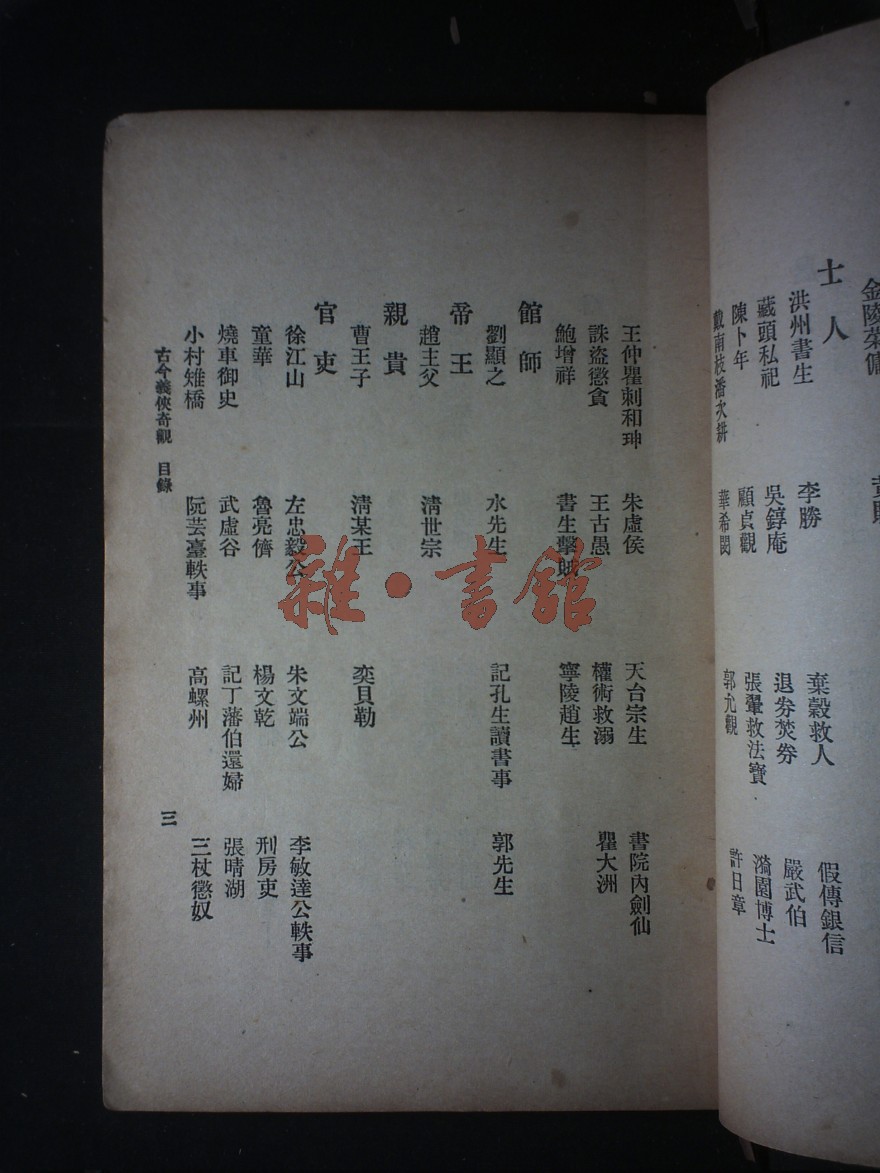 士人
洪州書生 李勝 棄穀救人 假傳銀信
藏頭私祀 吳錞庵 退券焚券 嚴武伯
陳卜年 顧貞觀 張翬救法寶 漪園博士
戴南枝潘次耕 華希閔 郭允觀 許日章
王仲瞿刺和珅 朱虛侯 天台宗生 書院內劍仙
誅盜懲貪 王古愚 權術救溺 瞿大洲
鮑增祥 書生擊賊 寧陵趙生
館師
劉顯之 水先生 記孔生讀書事 郭先生
帝王
趙主父 清世宗
親貴
曹王子 清某王 奕貝勒
官吏
徐江山 左忠毅公 朱文端公 李敏達公軼事
童華 魯亮儕 楊文乾 刑房吏
燒車御史 武虛谷 記丁藩伯還婦 張晴湖
小村雉橋 阮芸臺軼事 高螺州 三杖懲奴
古今義俠奇觀 目錄 三
雜·書館